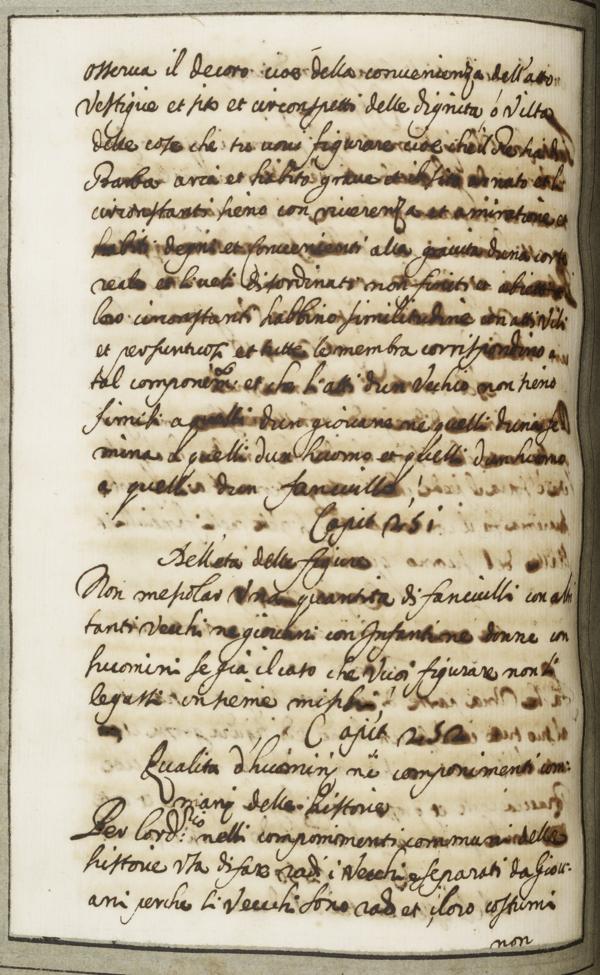 osserua il decoro cioé della conuenienza dell'atto
Vestigie et sito et circonspetti delle dignita ó viltá
delle cose che tu uoui figurare cioe che il Re sia di
Barba aria et habito graue et il sito ornato et li
circonstanti sieno con riuerenza et amiratione et
habiti degni et conuenienti alla grauita duna corte
reale et li uili disordinati non finiti et abietti
loro circonstanti habbino similitudine con atti vili
et prosuntuosi et tutte le membra corrispondino a
tal componimto et che li atti dun Vechio non sieno
simili a quelli dun giouane ne quelli duna fe
mina a quelli dun huomo et quelli dun huomo
a quelli dun fanciullo
Capit 251
Dell'etá delle figure
Non mescolar vna quantita di fanciulli con altre
tanti Vecchi ne giouani con Infanti ne donne con
huomini se già il caso che Vuoi figurare non li
legassi insieme misti
Capit 252
Qualita d'huomini ne componimenti com-
mani delle historie
Per lordro nelli componimenti communi delle
historie vsa di fare radi i Vecchi e separati da Giou-
ani perche li Vecchi sono radi et i loro costumi
non